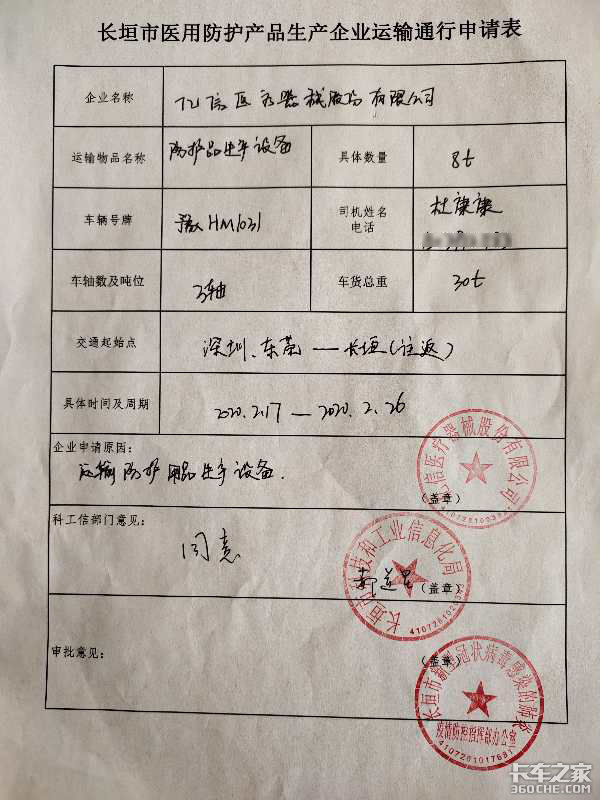 长垣市医用防护产品生产企业运输通行申请表
企业名称 亿信医疗器械股份有限公司
运输物品名称 防护品生产设备 具体数量 8t
车辆号牌 豫 HM1031 司机姓名 杜康康
电话
车轴数及吨位 3轴 车货总重 30t
交通起始点 深圳、东莞——长垣(往返)
具体时间及周期 2020.2.17 — 2020.2.26
企业申请原因:
运输防护用品生产设备.
亿信医疗器械股份有限公司
(盖章)
科工信部门意见:
同意
长垣市科技和工业信息化局
(盖章)
审批意见:
(盖章)
长垣市新型冠状病毒感染的肺炎
疫情防控指挥部办公室
4107281017681
卡车之家
360CHE.COM